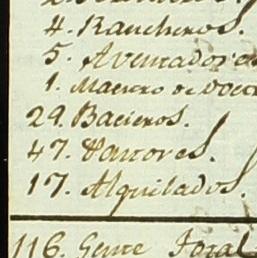 4. Rancheros.
5. Aventadores
1. Maestro de Doct
29. Bacieros.
47. Pastores.
17. Alquilados.
116. Gente Total